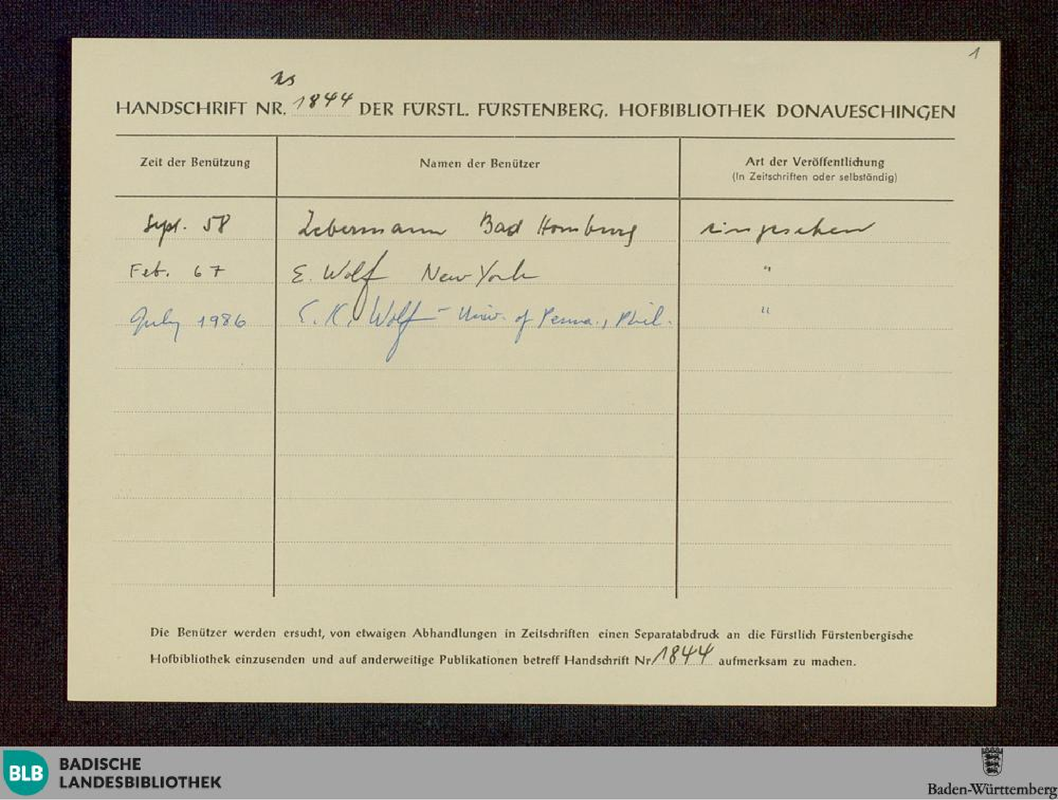 1
Ms
HANDSCHRIFT NR. 1844 DER FÜRSTL. FÜRSTENBERG. HOFBIBLIOTHEK DONAUESCHINGEN
Zeit der Benützung Namen der Benützer Art der Veröffentlichung
(In Zeitschriften oder selbständig)
Sept. 58 Lebermann Bad Homburg eingesehen
Feb. 67 E. Wolf New York "
July 1986 E. K. Wolf - Univ. of Penna., Phil. "
Die Benützer werden ersucht, von etwaigen Abhandlungen in Zeitschriften einen Separatabdruck an die Fürstlich Fürstenbergische
Hofbibliothek einzusenden und auf anderweitige Publikationen betreff Handschrift Nr 1844 aufmerksam zu machen.
BLB BADISCHE
LANDESBIBLIOTHEK
Baden-Württemberg